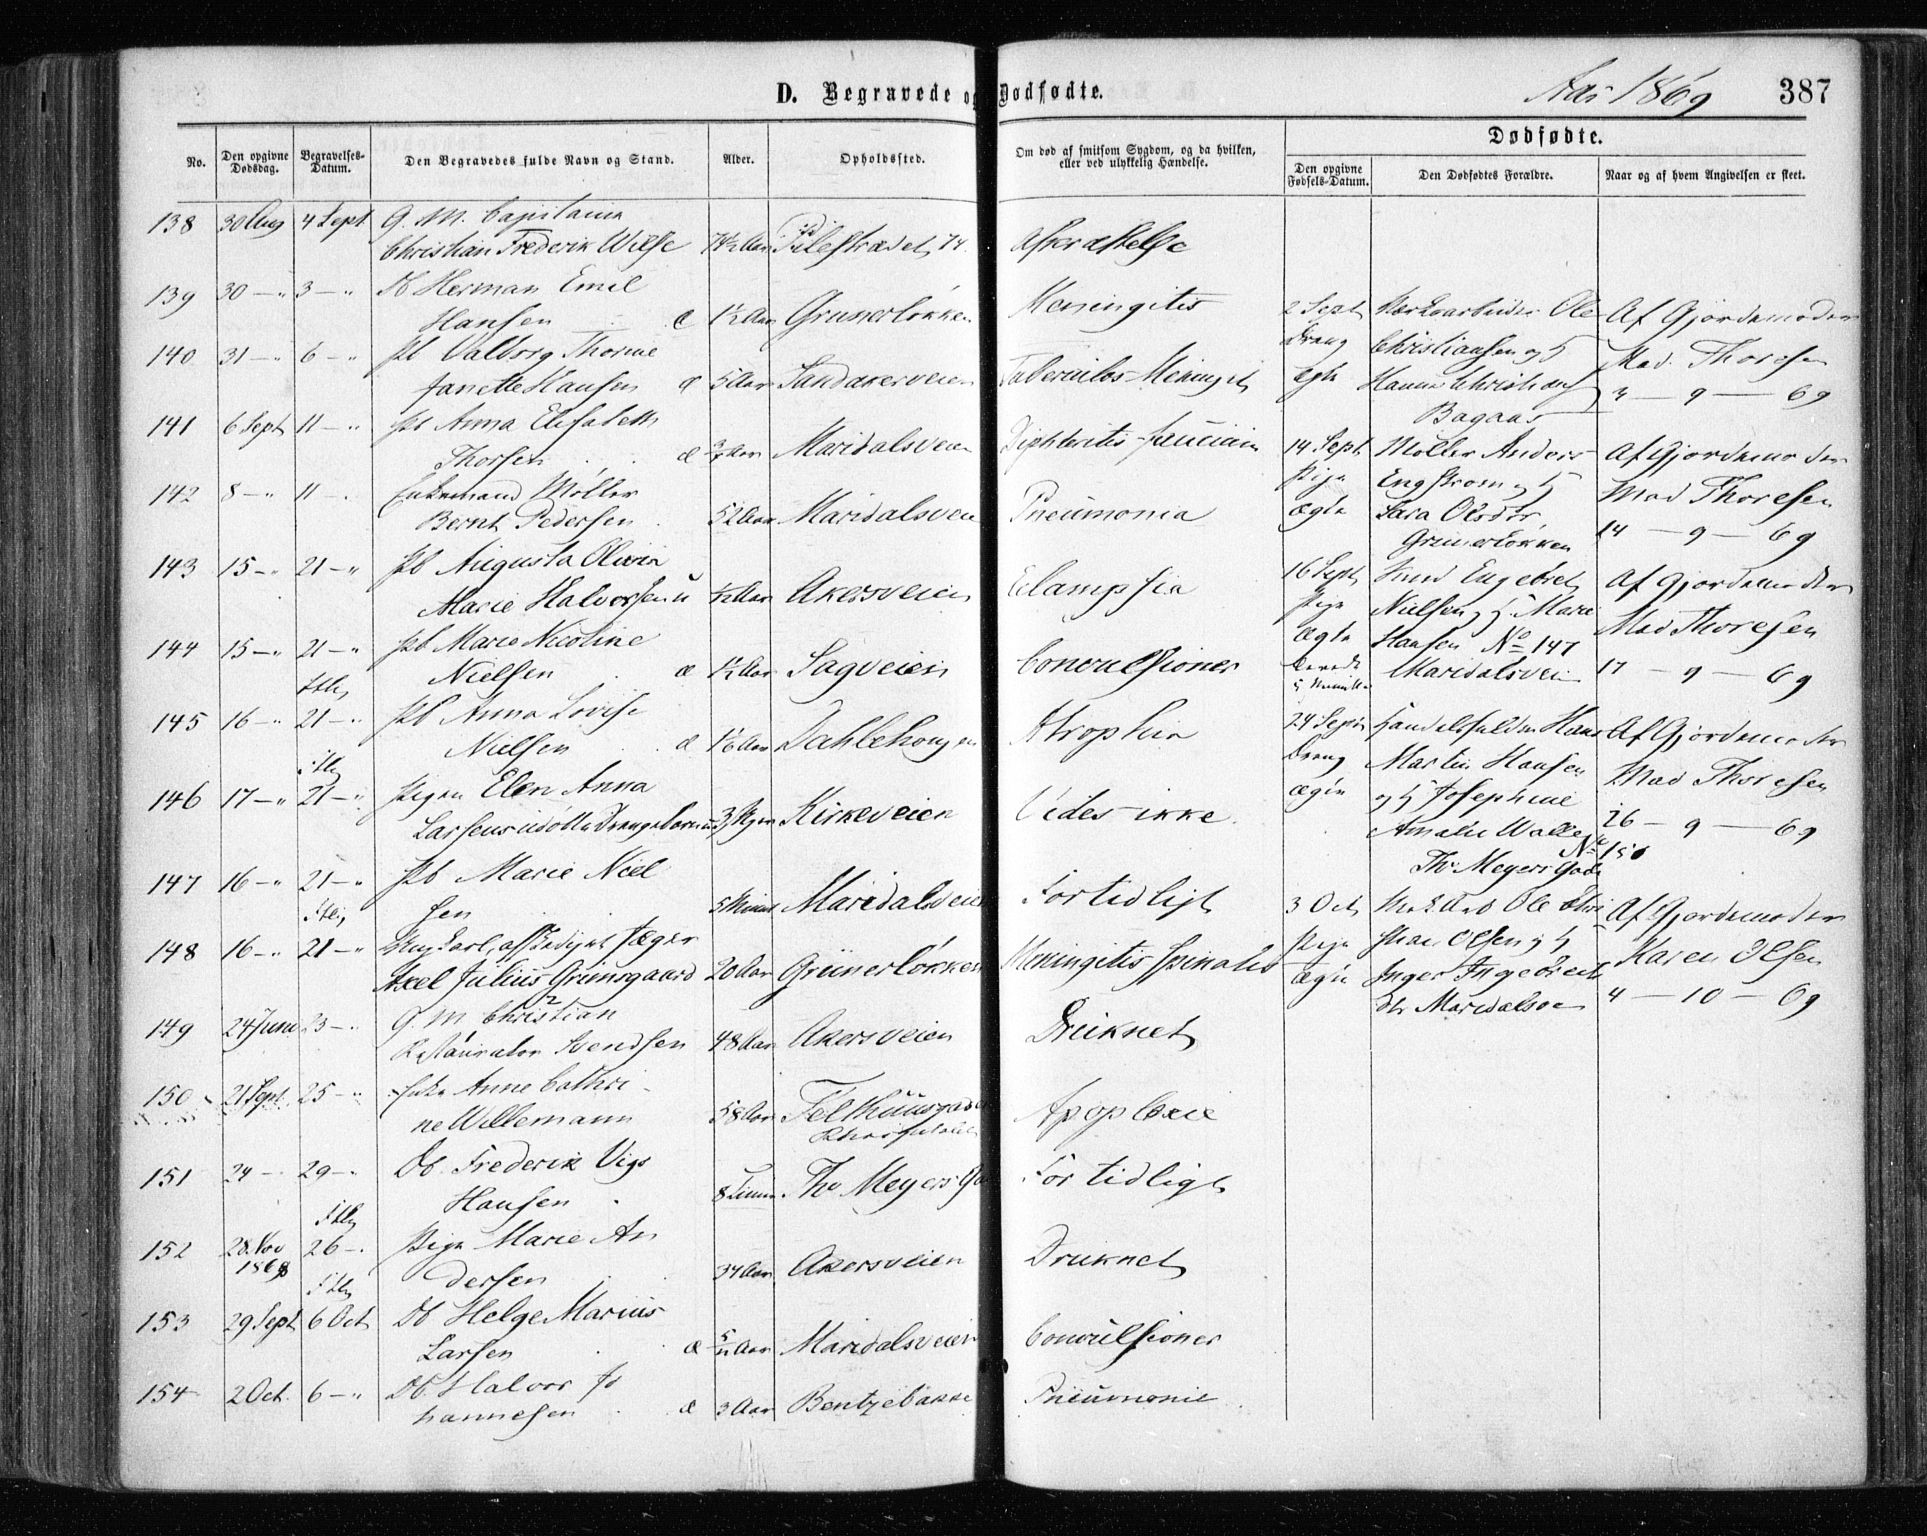 D. Begravede og Dødfødte.
Aar 1869
387
No.
Den opgivne Dødsdag.
Begravelses-Datum.
Den Begravedes fulde Navn og Stand.
Alder.
Opholdssted.
Om død af smitsom Sygdom, og da hvilken, eller ved ulykkelig Hændelse.
Dødfødte.
Den opgivne Fødsels-Datum.
Den Dødfødtes Forældre.
Naar og af hvem Angivelsen er skeet.
138 30 Aug 4 Sept G. M. Capitain
Christian Frederik Wilse 74½ Aar Pilestrædet 74. Afkræftelse
139 30 — " 3 — " Db Herman Emil
Hansen e 1½ Aar Grunerløkken Meningitis
140 31 — " 6 — " Pb Valborg Thorine
Janette Hansen e 5 Aar Sandakerveien
141 6 Sept 11 — " Pb Anna Elisabeth
Thorsen æ ¾ Aar Maridalsveien
142 8 — " 11 — Enkemand Møller
Bernt Pedersen 52 Aar Maridalsveie Pneumonia
143 15 — " 21 — " Pb Augusta Olivia
Marie Halvorsen u Aar Akersveien Eclampsia
144 15 — " 21 — " Pb Marie Nicoline
Nielsen æ 1½ Aar Sagveien Convulsioner
145 16 — " 21 — " Pb Anna Lovise
Nielsen æ Aar Dahlehougen Atrophia
146 17 — " 21 — " Pigen Elen Anna
Larsens udøbte Drengebarn Kirkeveien Vides ikke.
147 16 — " 21 — " Pb Marie Niel
sen 5 Minut Maridalsveien For tidligt
148 16 — " 21 — "
Axel Julius Grimsgaard 20 Aar Grünerløkken Meningitis spinalis
149 24 Juni 23 — " G. M. Christian
Restaurator Svendsen 48 Aar Akersveien Druknet
150 21 Sept. 25 — " Enke Anne Cathri-
ne Willemann 58 Aar Apoplexie
151 24 — 29 — " Db. Frederik Vigo
Hansen 8 Timer Th. Meyers Ga For tidligt
152 28. Nov 1868 26 — " Pige Marie An
dersen 34 Aar Akersveien Druknet
153 29 Sept 6 Oct Db Helge Marius
Larsen æ 5/12 Aar Maridalsveien Convulsioner
154 2 Oct. 6 — " Db. Halvor Jo
hannesen æ 3 Aar Bentzebakke Pneumonie.
2 Sept Ole Af Gjordemoder
Dreng Christiansen og H Mad. Thoresen
ægte Hanna 3 — 9 — 69
Bagaas
14 Sept Møller Anders Af Gjordemoder
Pige Engstrom og H Mad Thoresen
ægte Sara Olsdtr 14 — 9 — 69
Grunerløkken
16 Sept Engebret Af Gjordemoder
Pige Nielsen og H. Marie Mad Thoresen
ægte Hansen No 147 17 — 9 — 69
5 Minutter Maridalsvei
24 Sept Hans Af Gjordemoder
Dreng Martin Hansen Mad Thoresen
ægte og H Josephine 26 — 9 — 69
Amalie No 150
Th. Meyers Gade
3 Oct Ole Chri Af Gjordemoder
Pige Olsen og H Karen Olsen
ægte Inger 4 — 10 — 69
Maridalsve